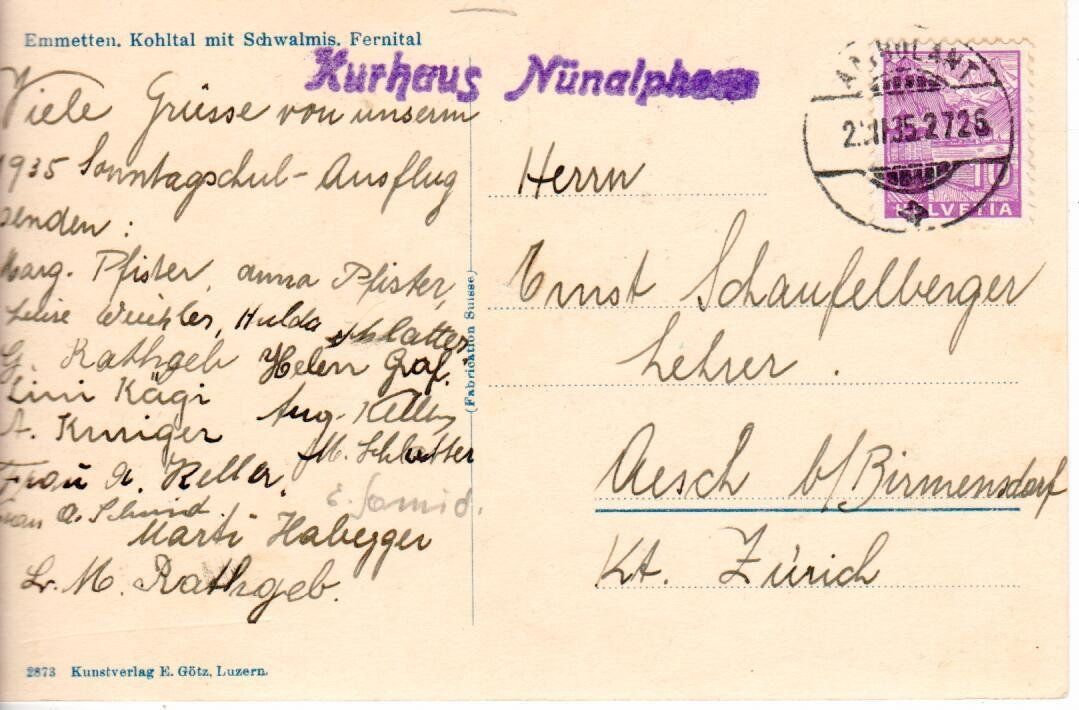 Emmetten. Kohltal mit Schwalmis. Fernital
Kurhaus Nünalphorn
Viele Grüsse von unserm
1935 Sonntagschul-Ausflug
senden:
Marg. Pfister, Anna Pfister,
Luise, Hulda Schlatter,
G. Rathgeb Helen Graf.
Lini Kägi Aug. Keller
A.
M. Schlatter
Frau A. Keller.
E. Schmid.
Frau A. Schmid.
Marti Habegger
Lr. M. Rathgeb.
2873 Kunstverlag E. Götz, Luzern.
(Fabrication Suisse)
AMBULANT
35.2726
10
HELVETIA
Herrn
Ernst Schaufelberger
Lehrer.
Aesch b/Birmensdorf
Kt. Zürich